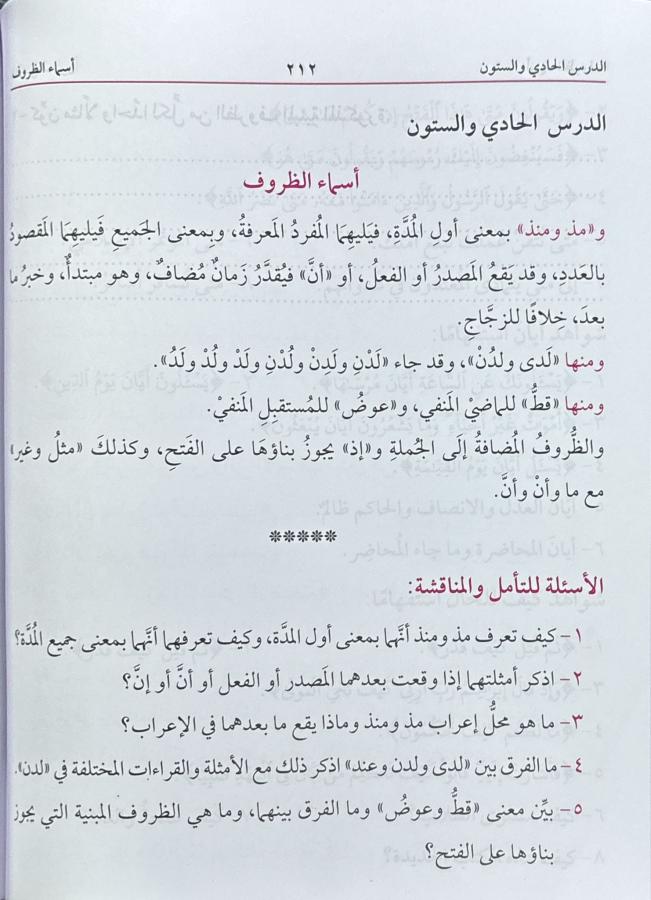 الدرس الحادي والستون ٢١٢ أسماء الظروف
الدرس الحادي والستون
أسماء الظروف
و«مذ ومنذ» بمعنى أول المُدَّةِ، فَيَليهِمَا المُفردُ المَعرفةُ، وبِمعنى الجَميع فَيليهِمَا المَقصودُ
بالعَددِ، وقد يَقعُ المَصدرُ أو الفعلُ، أو «أنَّ» فيُقدَّرُ زَمانٌ مُضافٌ، وهو مبتدأٌ، وخبرُ ما
بعدَ، خِلافًا للزجَّاجِ.
ومنها «لَدى ولدُنْ»، وقد جاء «لَدْنِ ولَدِنْ ولُدْنِ ولَدْ ولُدْ ولَدُ».
ومنها «قطُّ» للماضيْ المَنفي، و«عوضُ» للمُستقبلِ المَنفيْ.
والظُّروفُ المُضافةُ إلَى الجُملةِ و«إذ» يجوزُ بناؤهَا على الفَتحِ، وكذلكَ «مثلُ وغير»
مع ما وأنْ وأنَّ.
*****
الأسئلة للتأمل والمناقشة:
١- كيف تعرف مذ ومنذ أنَّها بمعنى أول المدَّة، وكيف تعرفهما أنَّهما بمعنى جميع المُدَّة؟
٢- اذكر أمثلتهما إذا وقعت بعدهما المَصدر أو الفعل أو أنَّ أو إنَّ؟
٣- ما هو محلُّ إعراب مذ ومنذ وماذا يقع ما بعدهما في الإعراب؟
٤- ما الفرق بين «لدى ولدن وعند» اذكر ذلك مع الأمثلة والقراءات المختلفة في «لدن».
٥- بيِّن معنى «قطُّ وعوضُ» وما الفرق بينهما، وما هي الظروف المبنية التي يجوز
بناؤها على الفتح؟